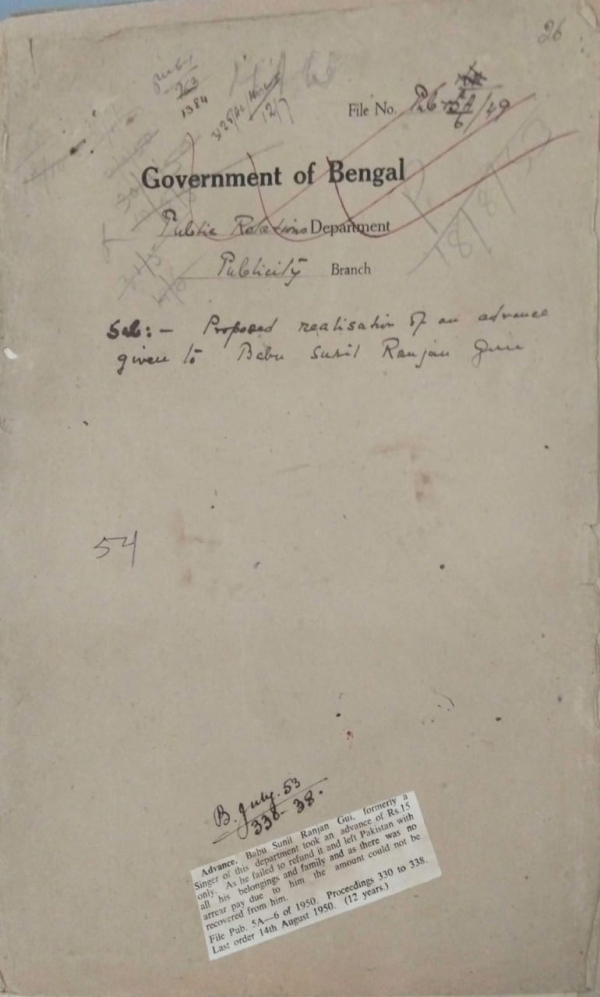 26
File No. Pub- 5A/6 /49
Government of Bengal
Public Relations Department
Publicity Branch
Sub:- Proposed realisation of an advance
given to Babu Sunil Ranjan
54
B. July. 53
338-38.
Advance, Babu Sunil Ranjan Gui, formerly a
Singer of this department took an advance of Rs.15
only. As he failed to refund it and left Pakistan with
all his belongings and family and as there was no
arrear pay due to him the amount could not be
recovered from him.
File Pub. 5A—6 of 1950. Proceedings 330 to 338.
Last order 14th August 1950. (12 years.)